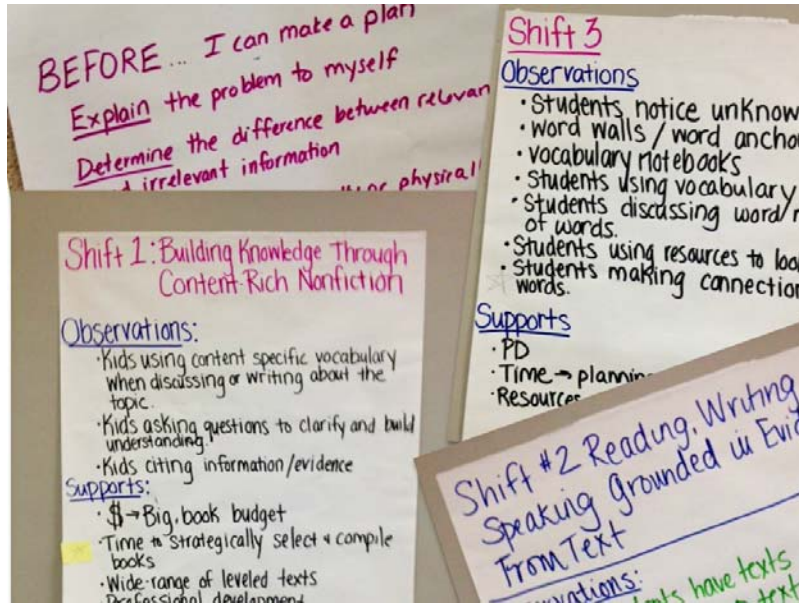 BEFORE... I can make a plan
Explain the problem to myself
Determine the difference between relevan
irrelevant information
or physicall
Shift 3
Observations
· Students notice unknow
· word walls / word ancho
· vocabulary notebooks
· Students using vocabulary
· Students discussing word/
of words.
· Students using resources to loo
· Students making connection
words.
Supports
· PD
· Time → planning
· Resources
Shift 1: Building Knowledge Through
Content-Rich Nonfiction
Observations:
· Kids using content specific vocabulary
when discussing or writing about the
topic.
· Kids asking questions to clarify and build
understanding.
· Kids citing information/evidence
Supports:
· $ → Big, book budget
· Time to strategically select & compile
books
· Wide-range of leveled texts
· Professional development
Shift #2 Reading, Writing
Speaking grounded in Evid
From Text
vations:
nts have texts
text